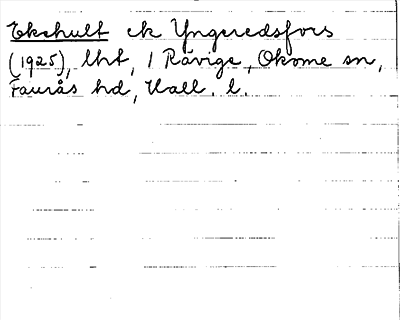 Ekehult ek Yngeredsfors
(1925), lht, 1 Ravige, Okome sn,
Faurås hd, Hall. l.